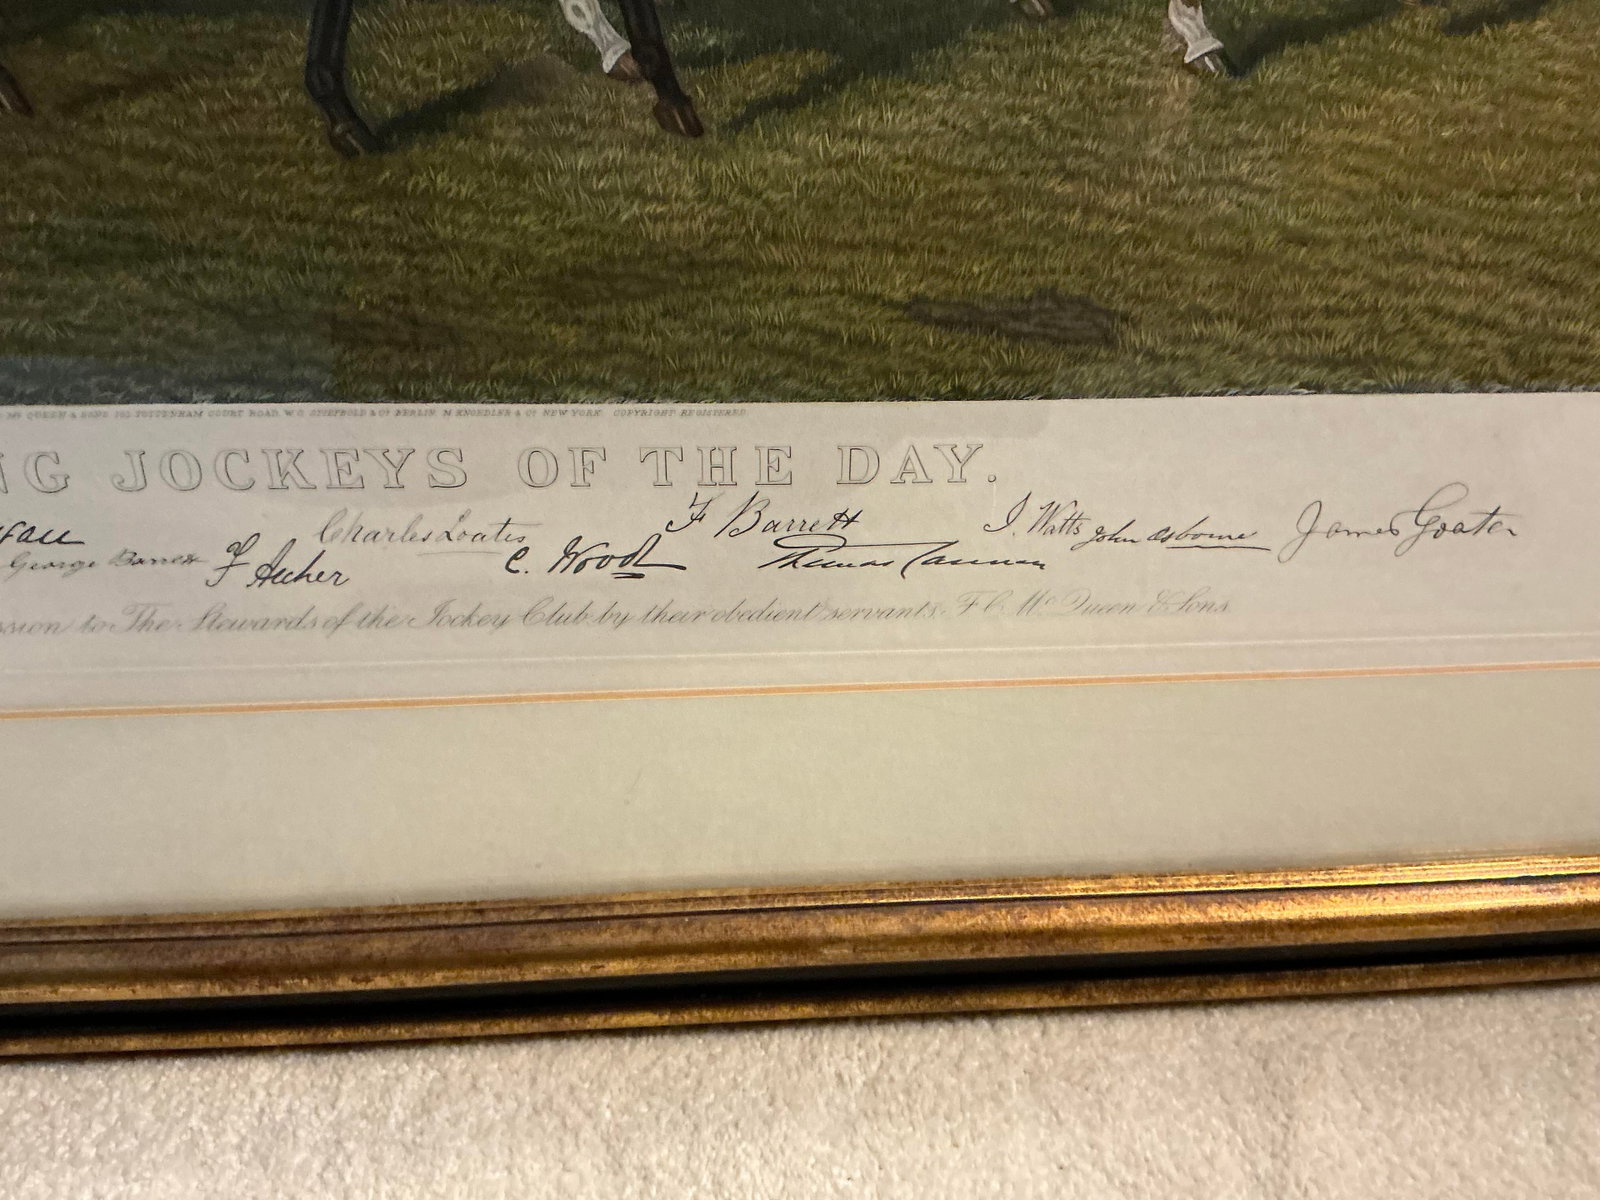 Mc QUEEN & SONS 181 TOTTENHAM COURT ROAD W.C. STIEFBOLD & Co BERLIN M KNOEDLER & Co NEW YORK COPYRIGHT REGISTERED
NG JOCKEYS OF THE DAY.
Charles Loates F Barrett J. Watts John Osborne James Goater
George Barrett F Archer C. Wood Thomas Cannon
ssion to The Stewards of the Jockey Club by their obedient servants F C McQueen & Sons